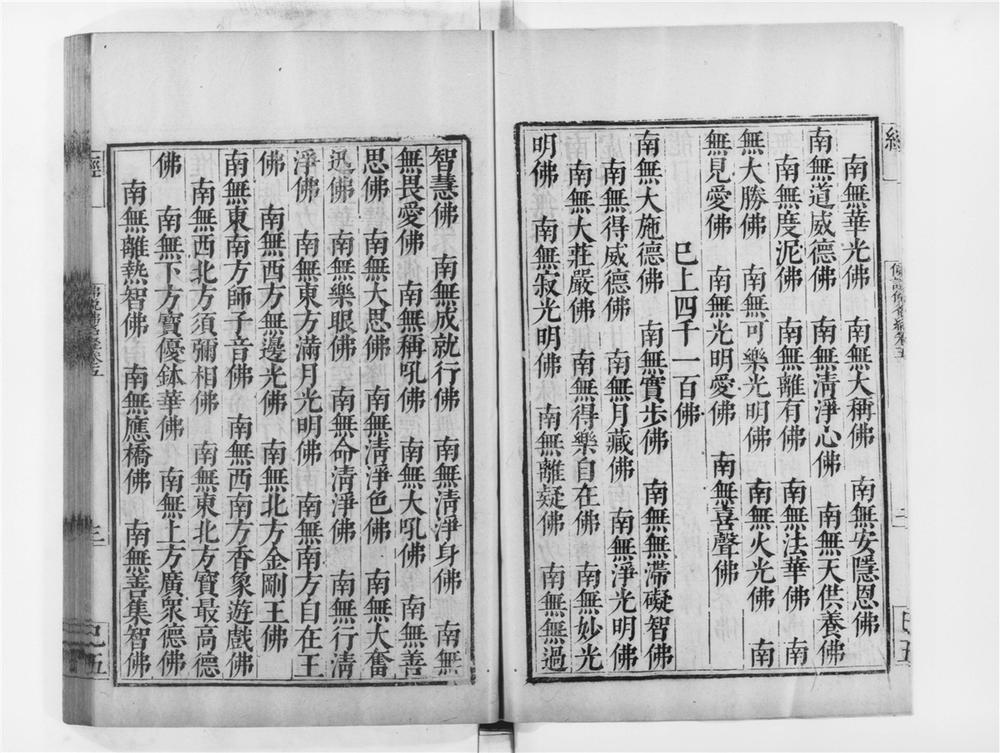 南無華光佛　南無大稱佛　南無安隱恩佛
南無道威德佛　南無清淨心佛　南無天供養佛
南無度泥佛　南無離有佛　南無法華佛　南
無大勝佛　南無可樂光明佛　南無火光佛　南
無見愛佛　南無光明愛佛　南無喜聲佛
已上四千一百佛
南無大施德佛　南無實步佛　南無無滯礙智佛
南無得威德佛　南無月藏佛　南無淨光明佛
南無大莊嚴佛　南無得樂自在佛　南無妙光
明佛　南無寂光明佛　南無離疑佛　南無無過
智慧佛　南無成就行佛　南無清淨身佛　南無
無畏愛佛　南無稱吼佛　南無大吼佛　南無善
思佛　南無大思佛　南無清淨色佛　南無大奮
迅佛　南無樂眼佛　南無命清淨佛　南無行清
淨佛　南無東方滿月光明佛　南無南方自在王
佛　南無西方無邊光佛　南無北方金剛王佛
南無東南方師子音佛　南無西南方香象遊戲佛
南無西北方須彌相佛　南無東北方寶最高德
佛　南無下方寶優鉢華佛　南無上方廣衆德佛
南無離熱智佛　南無應橋佛　南無善集智佛
經
三
巳五